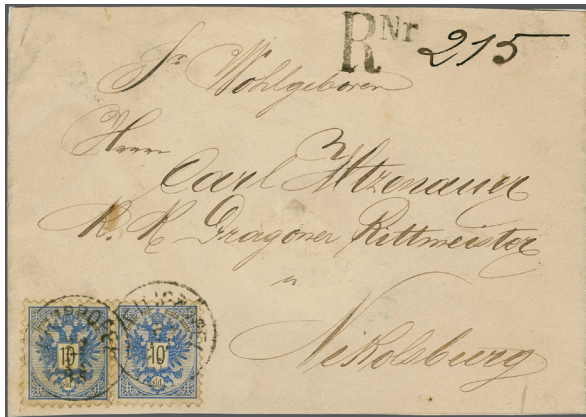 R Nr 215
Sr Wohlgeboren
Herrn
Carl Itzenauer
K. K. Dragoner Rittmeister
in
Nikolsburg
10 10